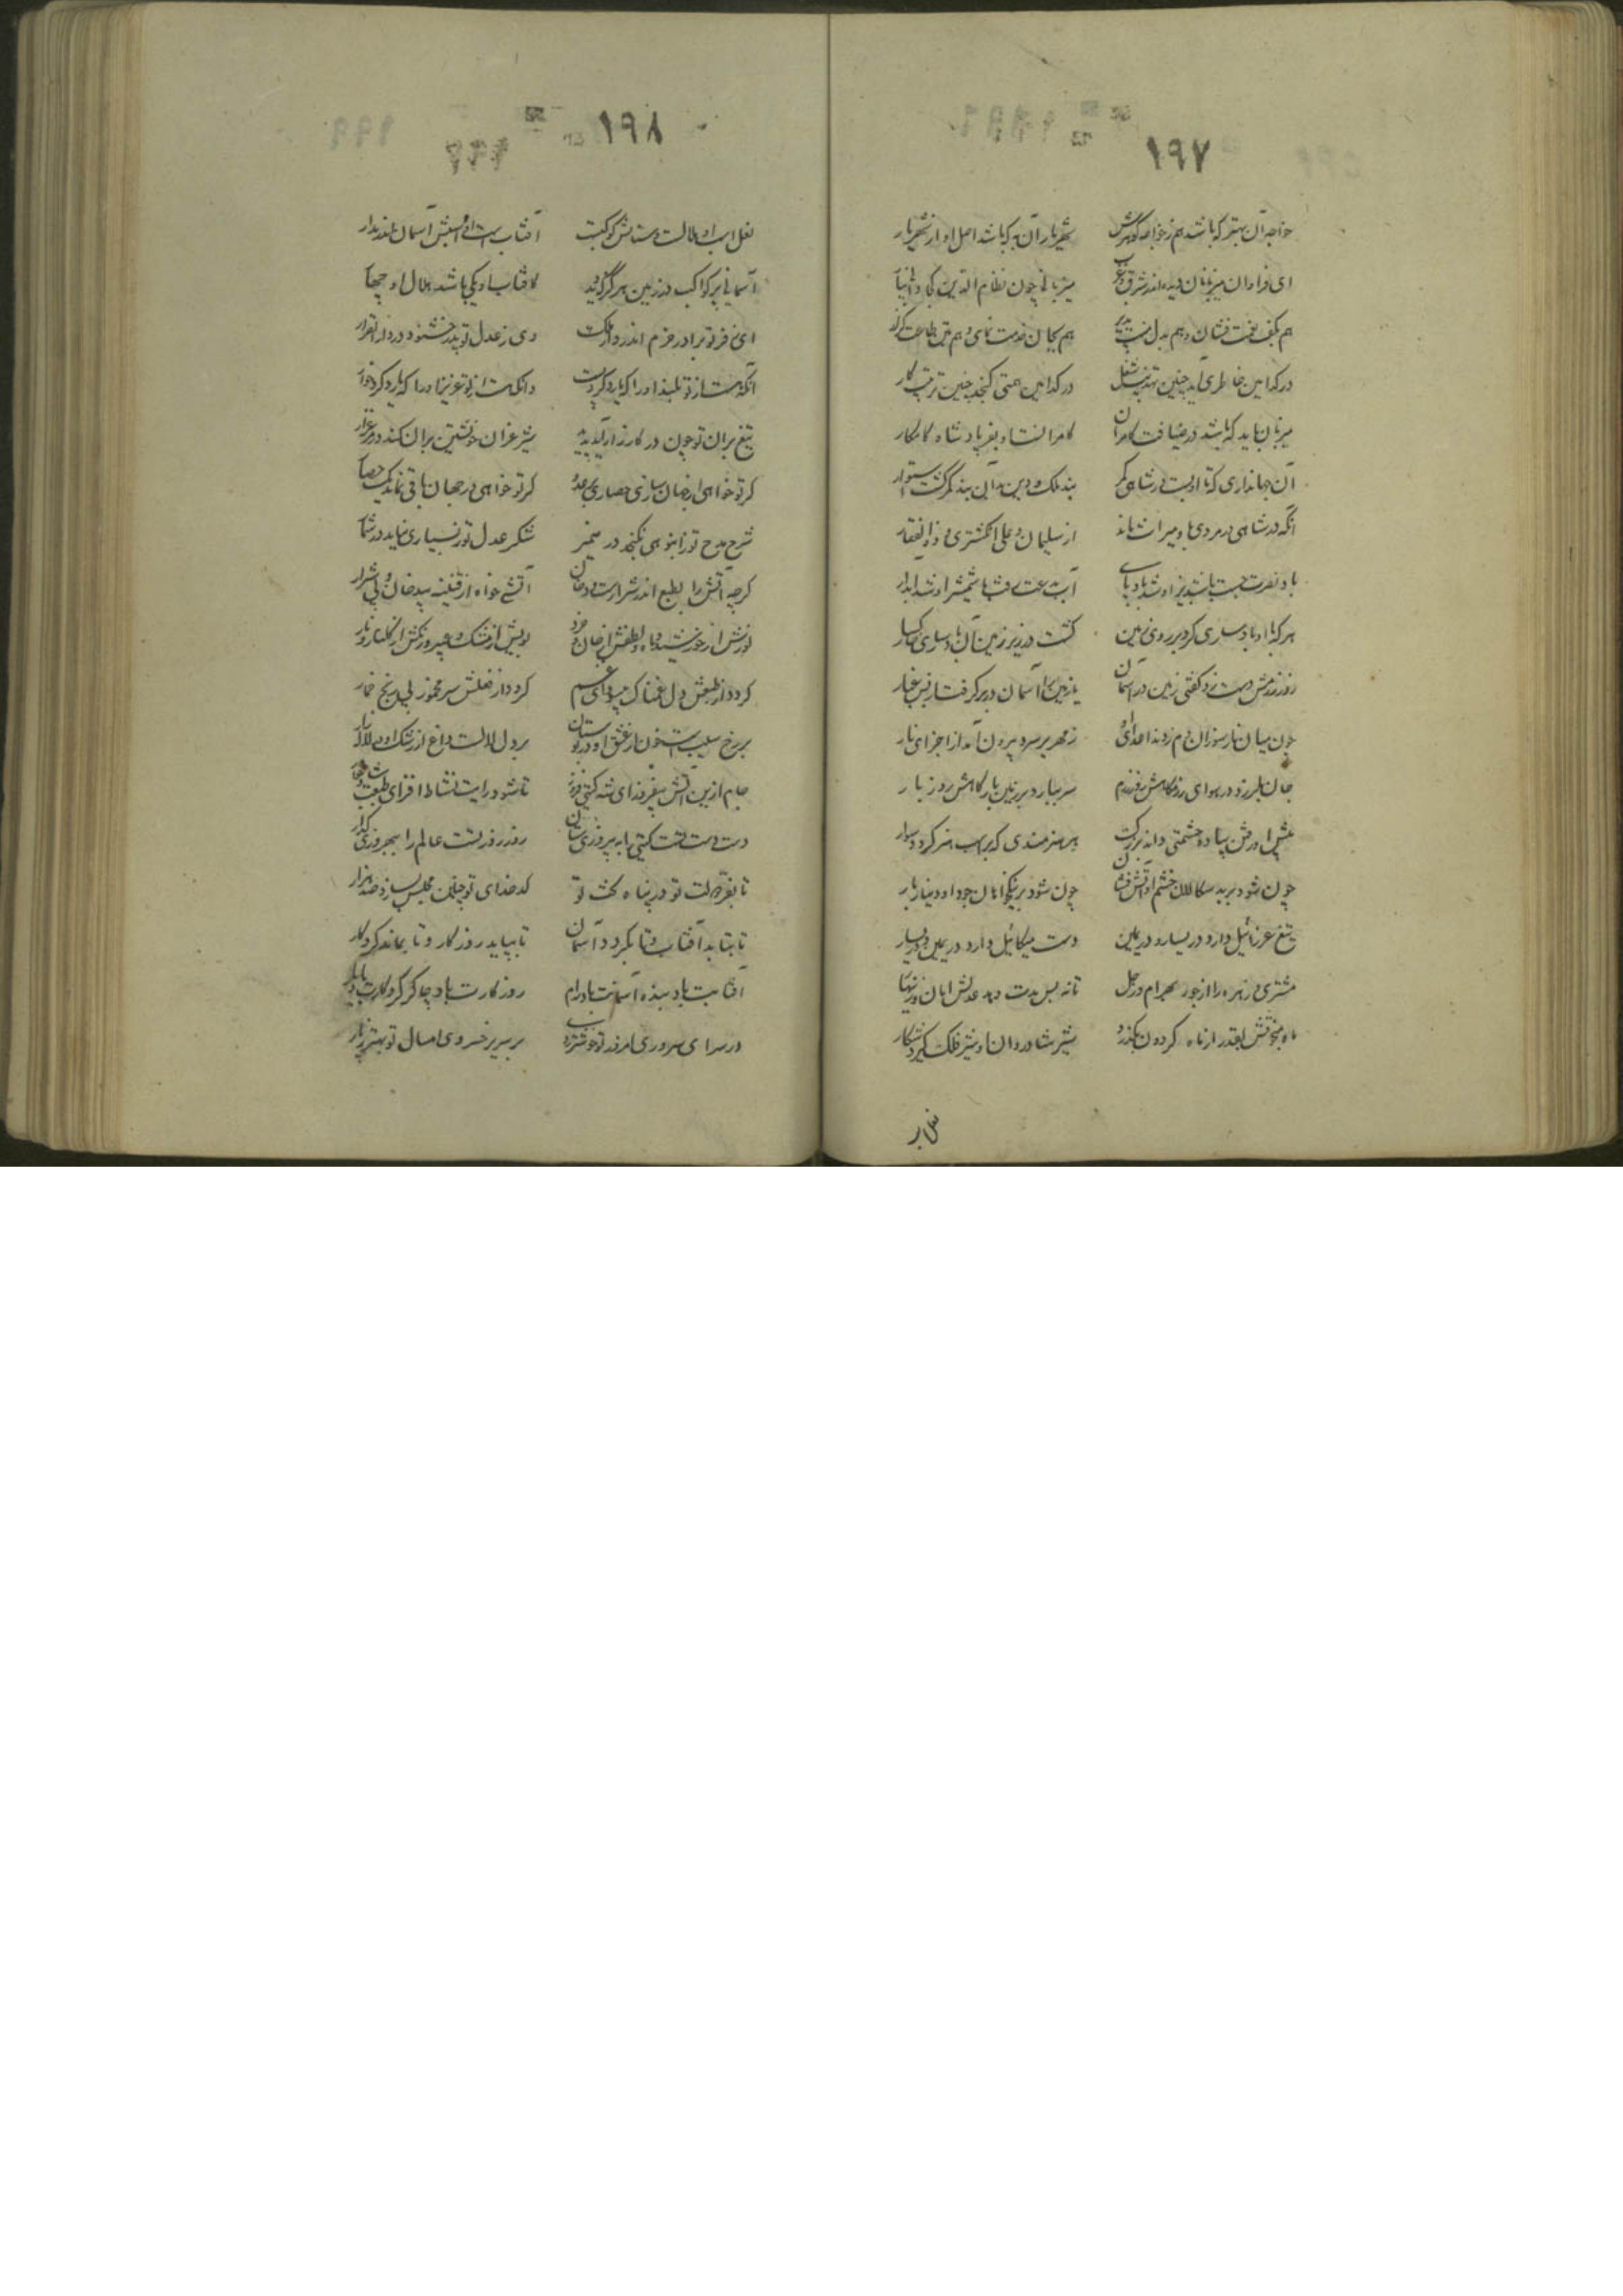 ۱۹۷
خواجه آن بهتر که باشد هم ز خواجه گوهرش شهریار آن به که باشد اصل او از شهریار
ای فراوان میزبانان دیده اندر شرق و غرب میزبانی چون نظام الدین کجا
هم بکف نعمت فشان و هم بدل هم بجان خدمت نمای و هم بتن طاعت
در کدامین خاطری آید چنین شغل در کدامین همتی گنجد چنین ترتیب کار
میزبان باید که باشد در ضیافت کامران کامران پادشاه کامکار
آن جهانداری که تا او در شاهی بند ملک و دین بدان بند کمر گشت استوار
آنکه در شاهی و مردی باو میراث ماند از سلیمان و علی انگشتری و ذوالفقار
باد نصرت او شد باد پای آب شمشیر او شد آبدار
هر که با او باد ساری کرد بر روی زمین گشت در زیر زمین آن باد ساری خاکسار
روز رزمش گفتی زمین در آسمان یا زمین را آسمان در بر گرفت از بس غبار
چون میان نار سوزان دم زند اعدای او زمهریر سرد بیرون آید از اجزای نار
جان بلرزد در هوای روز رزم سر ببارد بر زمین روز بار
پیش او پیاده بزرگ هر هنرمندی که بر اسب هنر گردد سوار
چون شود بر بد سگالان خشم او آتش فشان چون شود بر نیکخواهان جود او دینار بار
تیغ عزرائیل دارد در یسار و در یمین دست میکائیل دارد در یمین و در یسار
مشتری و زهره را از جور بهرام و زحل تا نه بس مدت دهد عدلش امان و زینهار
ماه بقدر از ماه گردون بگذرد شیر شادروان او شیر فلک گیرد شکار
نعل اسب
۱۹۸
نعل اسب او هلالست و ستامش کوکبست آفتاب است او و اسبش آسمان
آسمانی پر کواکب در زمین هرگز که دید کافتاب او یکی باشد هلال او چهار
ای ز فر تو برادر خرم اندر مملکت وی ز عدل تو پدر خشنود در دار القرار
آنکه هست از تو بلند او را که یارد کرد پست وانکه هست از تو عزیز او را که یارد کرد خوار
تیغ بران تو چون در کارزار آید پدید شیر غران خویشتن بران کند در مرغزار
گر تو خواهی از جهان سازی حصاری بر عدو گر تو خواهی در جهان باقی نماند یک حصار
شرح مدح تو ز انبوهی نگنجد در ضمیر شکر عدل تو ز بسیاری نیاید در شمار
گرچه آتش را بطبع اندر شرارست و دخان آتشی خواه از قنینه بی دخان و بی شرار
نورش از خورشید و ماه و لطفش از جان و خرد بویش از مشک و عبیر و رنگش از گلنار و نار
گردد از طبعش دل غمناک بی سودای غم گردد از فعلش سر مخمور بی رنج خمار
بر رخ سیب است خون از عشق او در بوستان بر دل لالست داغ از رشک او در لاله زار
جام ازین آتش بیفروز ای شه گیتی فروز تا شود رایت نشاط افزای و طبعت شاد خوار
دست دست تست گیتی را به پیروزی ستان روز روز تست عالم را ببهروزی گذار
تا بفر دولت تو در پناه تخت تو کدخدای تو چنین مجلس بسازد صد هزار
تا بتابد آفتاب و تا بگردد آسمان تا بپاید روزگار و تا بماند کردگار
آفتابت باد بنده آسمانت باد رام روزگارت باد چاکر کردگارت باد یار
در سرای سروری امروز تو خوشتر ز دی بر سریر خسروی امسال تو بهتر ز پار